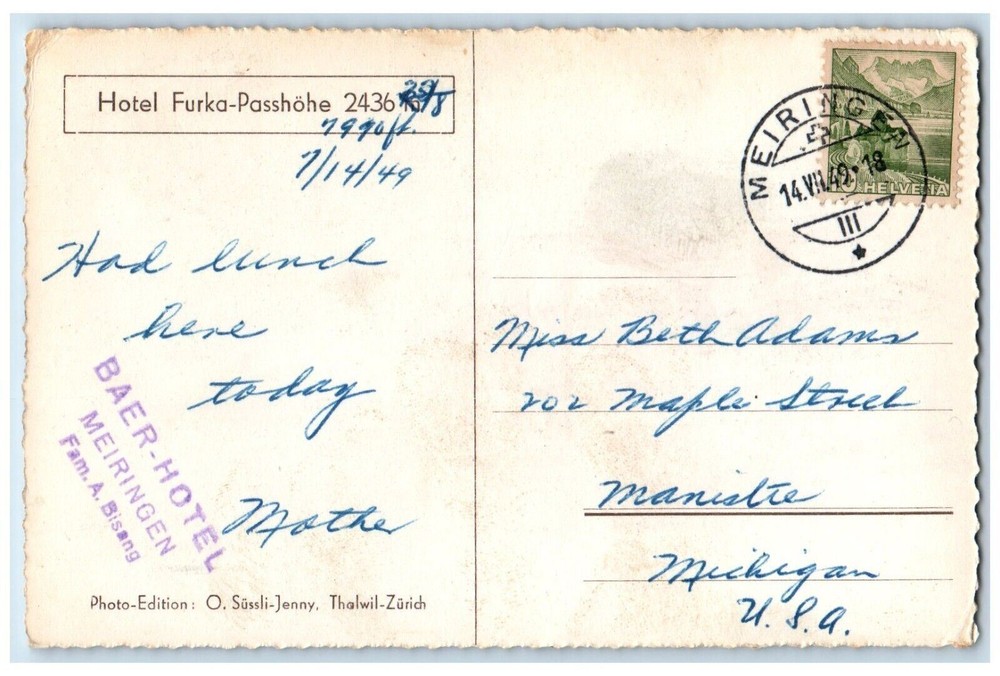 Hotel Furka-Passhöhe 2436 m
7990 ft.
7/14/49
Had lunch
here
today
Mother
BAER-HOTEL
MEIRINGEN
Fam. A. Bisang
Photo-Edition: O. Süssli-Jenny, Thalwil-Zürich
MEIRINGEN
14.VII.49. 18
III
HELVETIA
Miss Beth Adams
202 Maple Street
Manistee
Michigan
U.S.A.